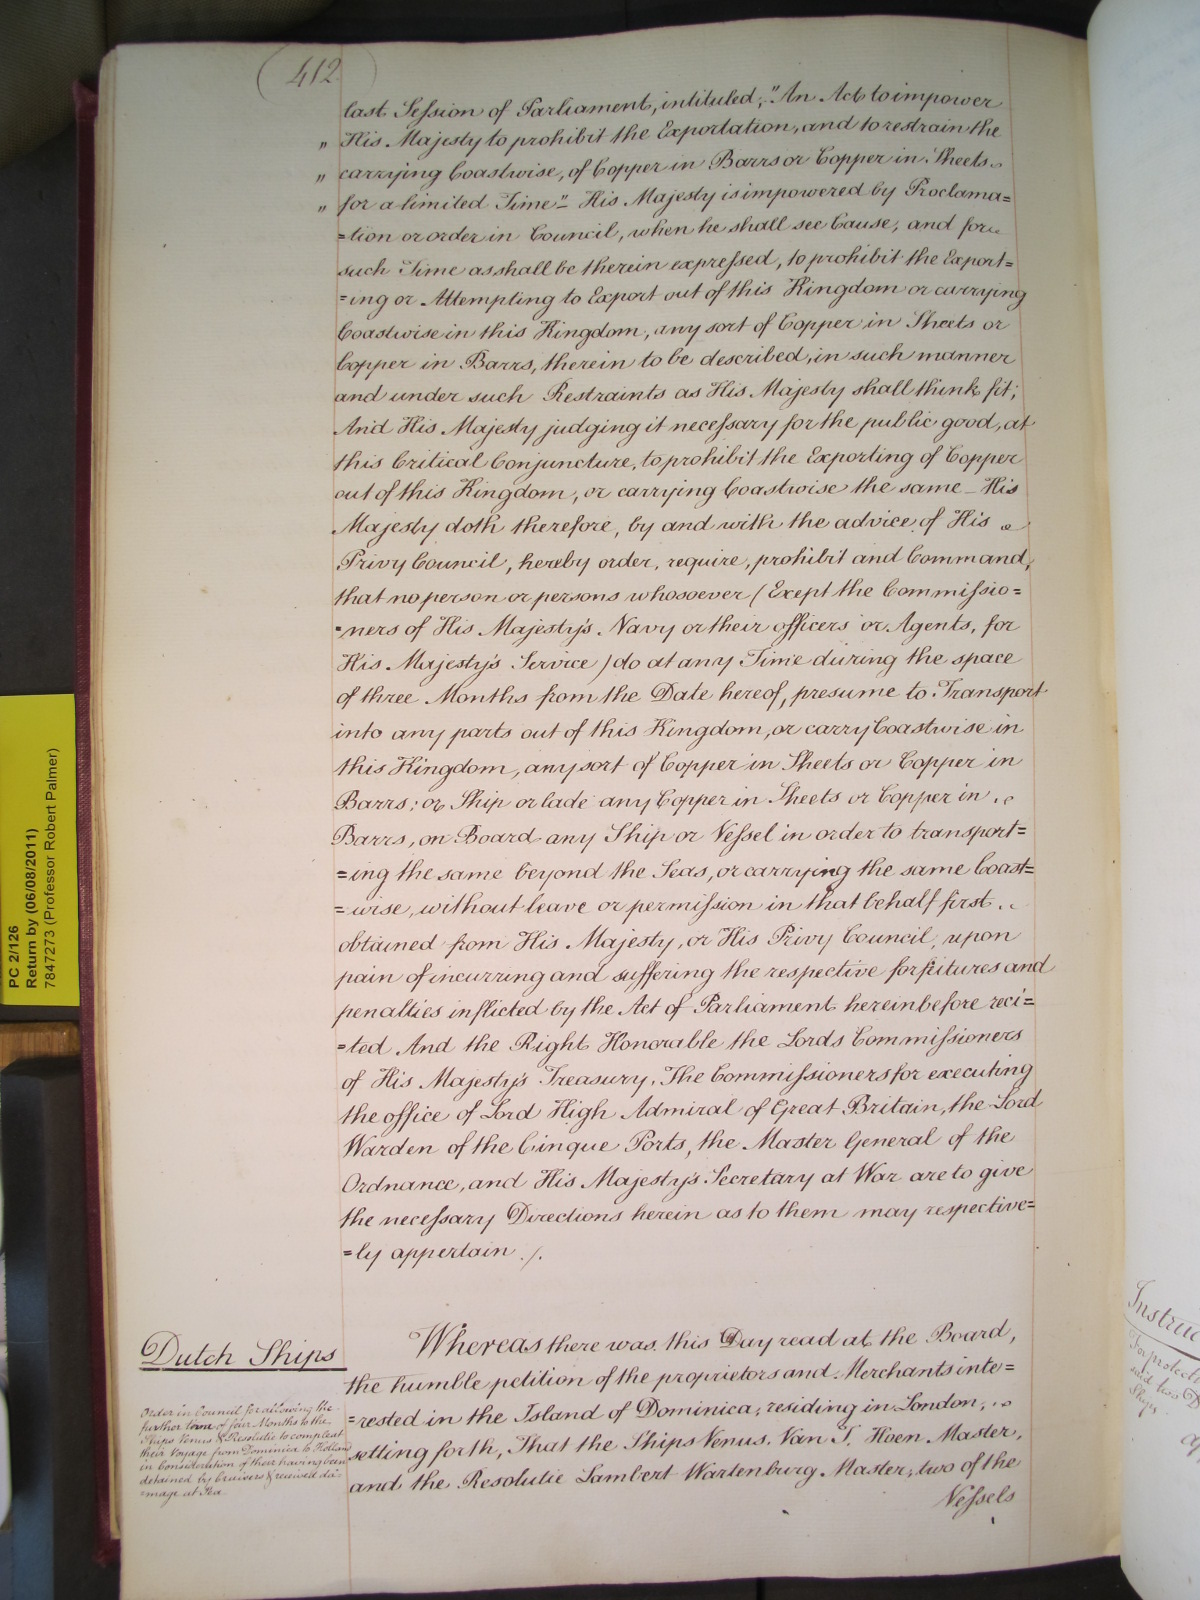 412
last Session of Parliament, intituled; "An Act to impower
" His Majesty to prohibit the Exportation, and to restrain the
" carrying Coastwise, of Copper in Barrs or Copper in Sheets
" for a limited Time" His Majesty is impowered by Proclama=
=tion or order in Council, when he shall see Cause, and for
such Time as shall be therein expressed, to prohibit the Export=
=ing or Attempting to Export out of this Kingdom or carrying
Coastwise in this Kingdom, any sort of Copper in Sheets or
Copper in Barrs, therein to be described, in such manner
and under such Restraints as His Majesty shall think fit;
And His Majesty judging it necessary for the public good, at
this Critical Conjuncture, to prohibit the Exporting of Copper
out of this Kingdom, or carrying Coastwise the same - His
Majesty doth therefore, by and with the advice of His
Privy Council, hereby order, require, prohibit and Command,
that no person or persons whosoever (Exept the Commissio=
=ners of His Majesty's Navy or their officers or Agents, for
His Majesty's Service) do at any Time during the space
of three Months from the Date hereof, presume to Transport
into any parts out of this Kingdom, or carry Coastwise in
this Kingdom, any sort of Copper in Sheets or Copper in
Barrs; or Ship or lade any Copper in Sheets or Copper in
Barrs, on Board any Ship or Vessel in order to transport=
=ing the same beyond the Seas, or carrying the same Coast=
=wise, without leave or permission in that behalf first
obtained from His Majesty, or His Privy Council, upon
pain of incurring and suffering the respective forfeitures and
penalties inflicted by the Act of Parliament hereinbefore reci=
=ted And the Right Honorable the Lords Commissioners
of His Majesty's Treasury, The Commissioners for executing
the office of Lord High Admiral of Great Britain, the Lord
Warden of the Cinque Ports, the Master General of the
Ordnance, and His Majesty's Secretary at War are to give
the necessary Directions herein as to them may respective=
=ly appertain ./.
Dutch Ships
Order in Council for allowing the
further term of four Months to the
Ships Venus & Resolutie to compleat
their Voyage from Dominica to Holland
in Consideration of their having been
detained by Cruizers & received da=
=mage at Sea
Whereas there was this Day read at the Board,
the humble petition of the proprietors and Merchants inte=
=rested in the Island of Dominica, residing in London,
setting forth, That the Ships Venus, Van T. Hoen Master,
and the Resolutie Lambert Wartenburg Master, two of the
Vessels
PC 2/126
Return by (06/08/2011)
7847273 (Professor Robert Palmer)
Instruc
For protect
said two D
Ships